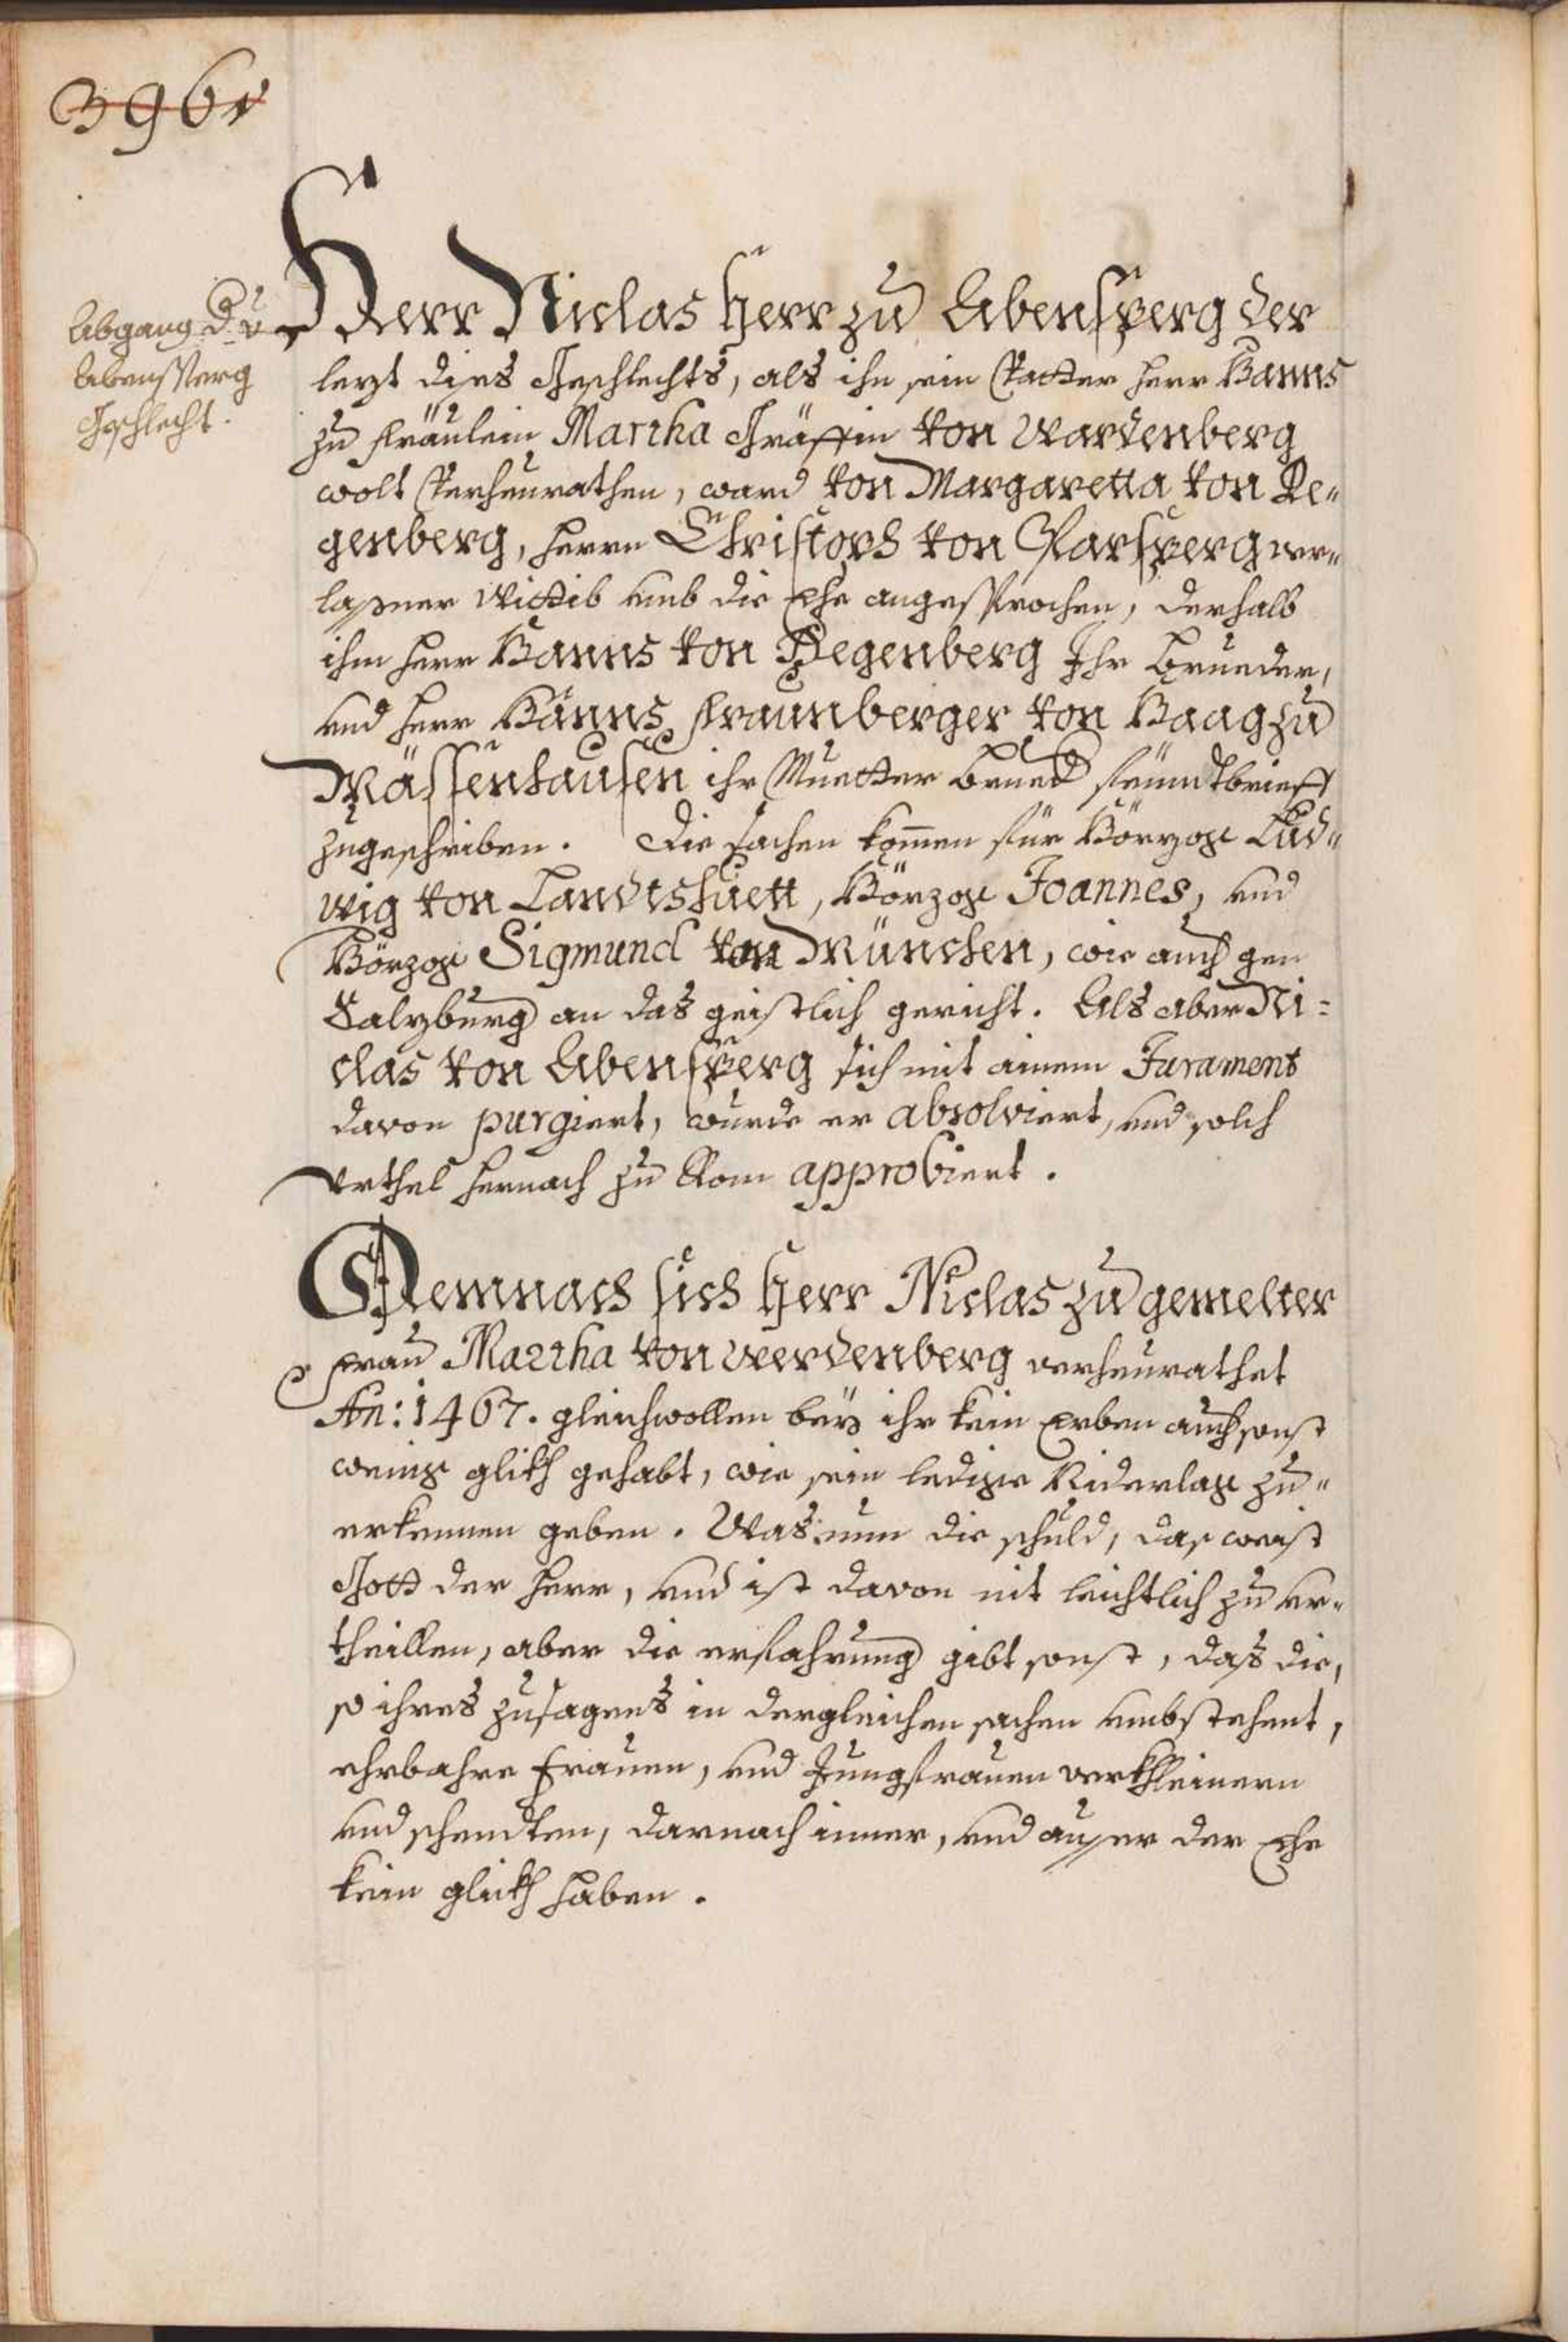 396v
Abgang d. v.
Abensperg
Gschlecht.
Herr Niclas Herr zu Abensperg der
lezt dies Geschlechts, als ihn sein Vatter Herr Hanns
zu Fräulein Martha Gräffin von Wardenberg
wolt Verheurathen, ward von Margaretta von De„
genberg, Herrn Christoph von Parsperg ver„
laßner Wittib umb die Ehe angesprochen, derhalb
ihm Herr Hanns von Degenberg Ihr Brueder,
und Herr Hanns Fraunberger von Haag zu
Mässenhausen ihr Muetter Brued feündtbrieff
zugeschriben. Die sachen komen für Hörzog Lud„
wig von Landtshuett, Hörzog Joannes, und
Hörzog Sigmund von München, wie auch gen
Salzburg an das geistlich gericht. Als aber Ni=
clas von Abensperg sich mit ainem Jurament
davon purgiert, wurde er absolviert, und solch
Urthel hernach zu Rom approbiert.
Demnach sich Herr Niclas zu gemelter
Frau Martha von Werdenberg verheurathet
An: 1467. gleichwollen bey ihr kein Erben auch sonst
wenig glikh gehabt, wie sein ledige Niderlag zu„
erkennen geben. Was nun die schuld, das weist
Gott der Herr, und ist davon nit leichtlich zu ur„
theillen, aber die erfahrung gibt sonst, daß die,
so ihres zusagens in dergleichen sachen umbstehent,
ehrbahre Frauen, und Jungfrauen verkhleinern
und schendten, darnach inner, und ausser der Ehe
kein glikh haben.